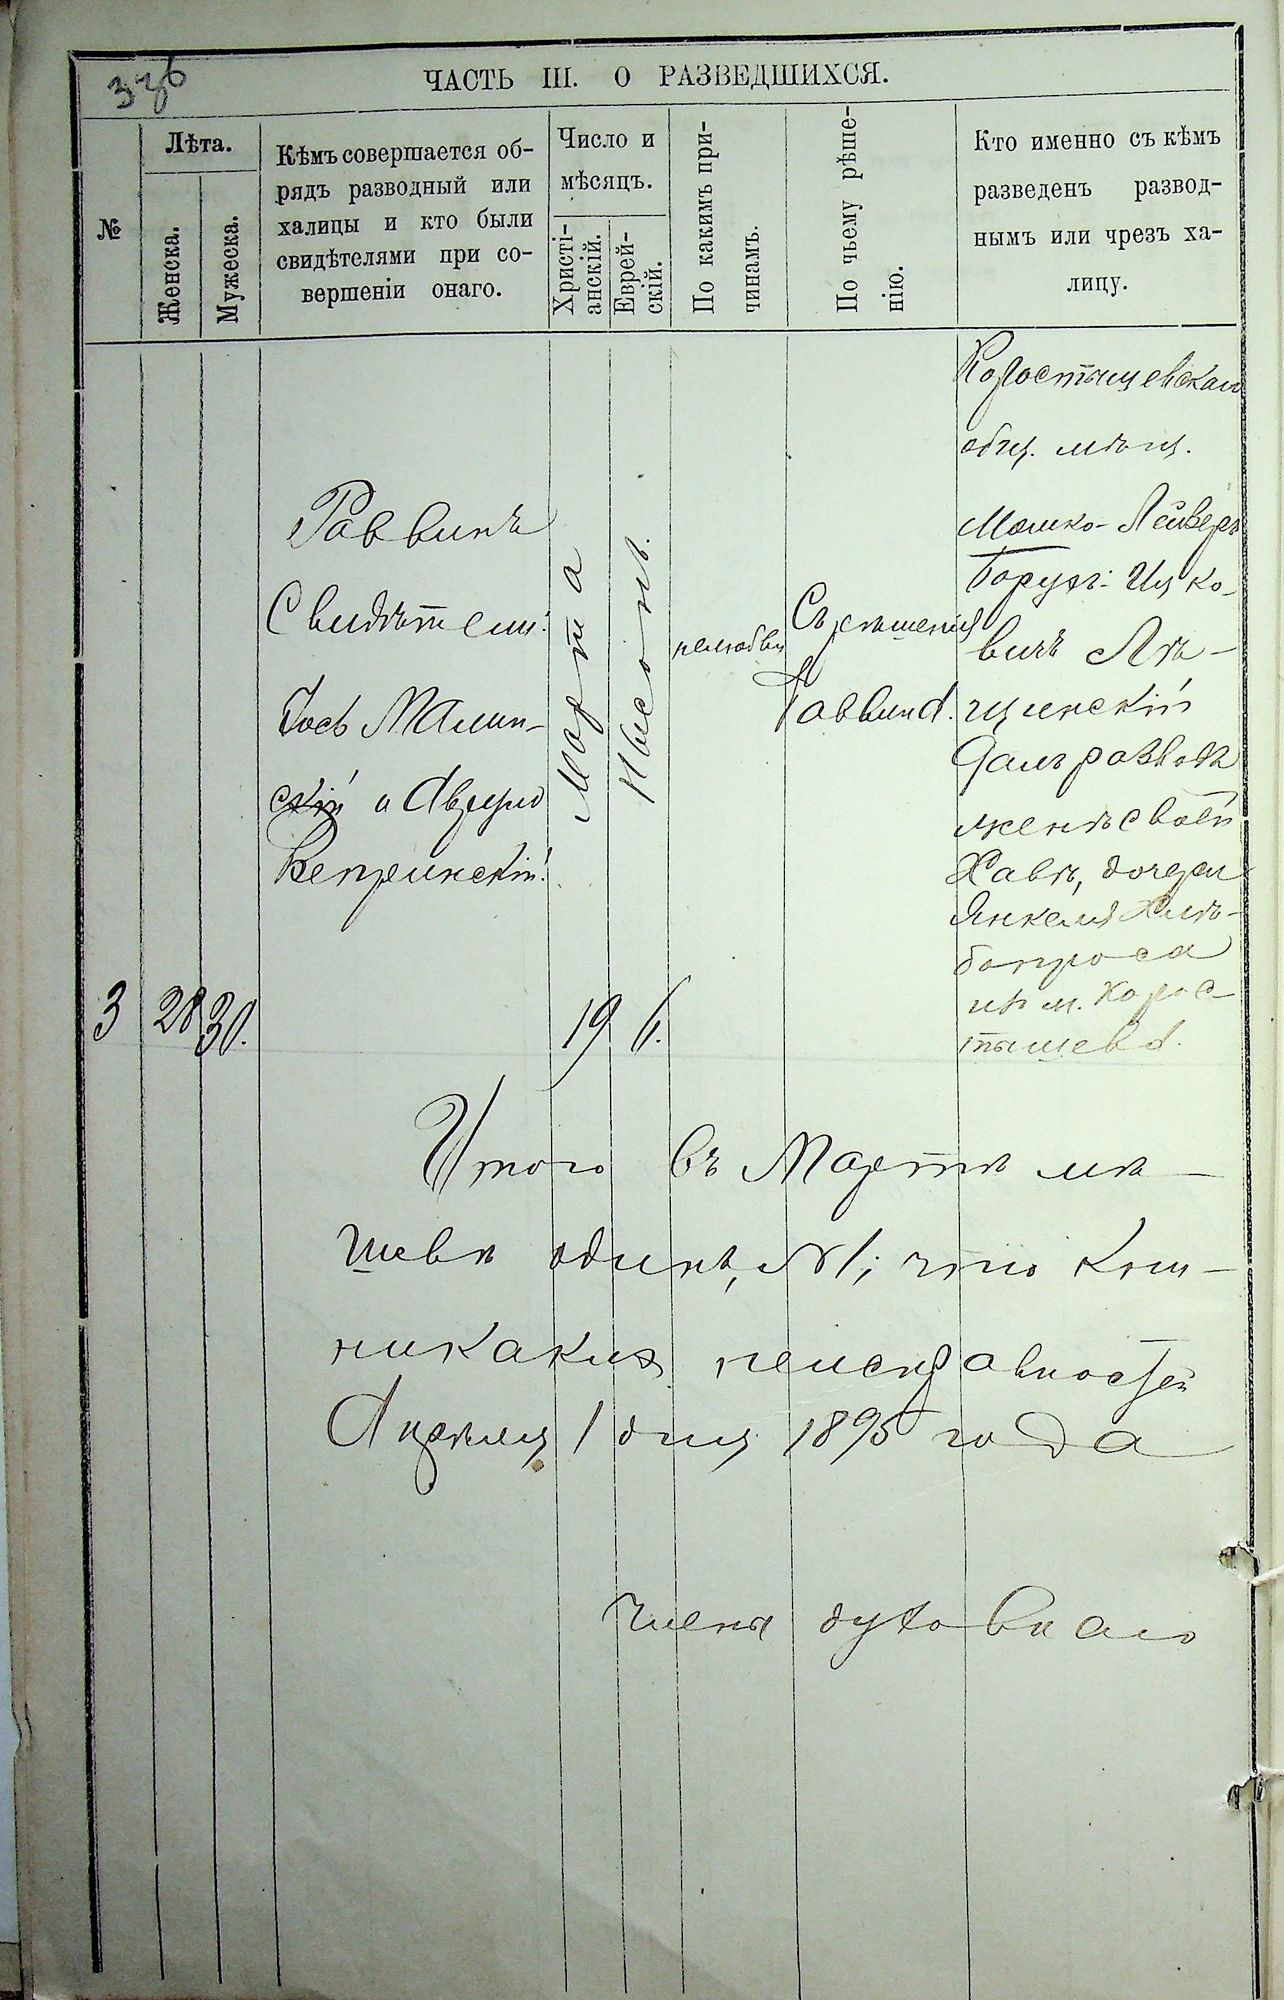 376
ЧАСТЬ III. О РАЗВЕДШИХСЯ.
№
Лѣта.
Женска.
Мужеска.
Кѣмъ совершается об-
рядъ разводный или
халицы и кто были
свидѣтелями при со-
вершеніи онаго.
Число и
мѣсяцъ.
Христі-
анскій.
Еврей-
скій.
По какимъ при-
чинамъ.
По чьему рѣше-
нію.
Кто именно съ кѣмъ
разведенъ развод-
нымъ или чрезъ ха-
лицу.
3
28
30.
Раввинъ
Свидѣтели:
Іось
скій и
Марта
19
Нисонъ.
6.
нелюбви
Съ рѣшенія
Раввина.
Коростышевскаго
общ. мѣщ.
Мошко-Лейзеръ
Борухъ-Ицко-
вичъ Лѣ-
щинскій
Далъ разводъ
женѣ своей
Хавѣ, дочери
Янкеля Хлѣ-
изъ м. Корос-
тышева.
Итого въ Мартѣ мѣ-
одинъ, №1; что
никакихъ неисправностей
Апрѣля 1 дня 1895 года
Члены духовнаго